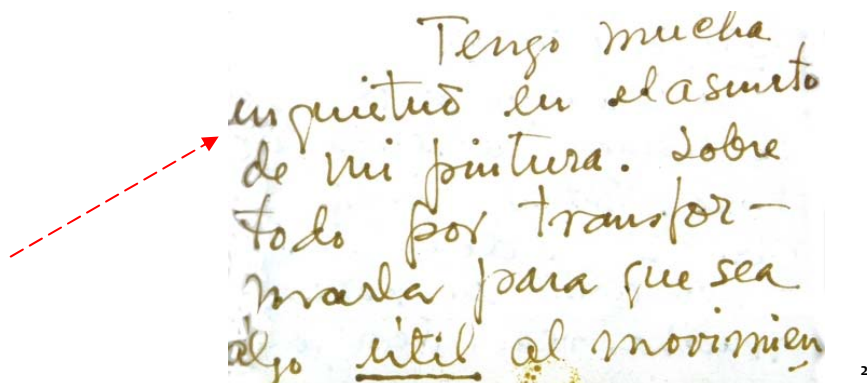 Tengo mucha
inquietud en el asunto
de mi pintura. Sobre
todo por transfor-
marla para que sea
algo útil al movimien